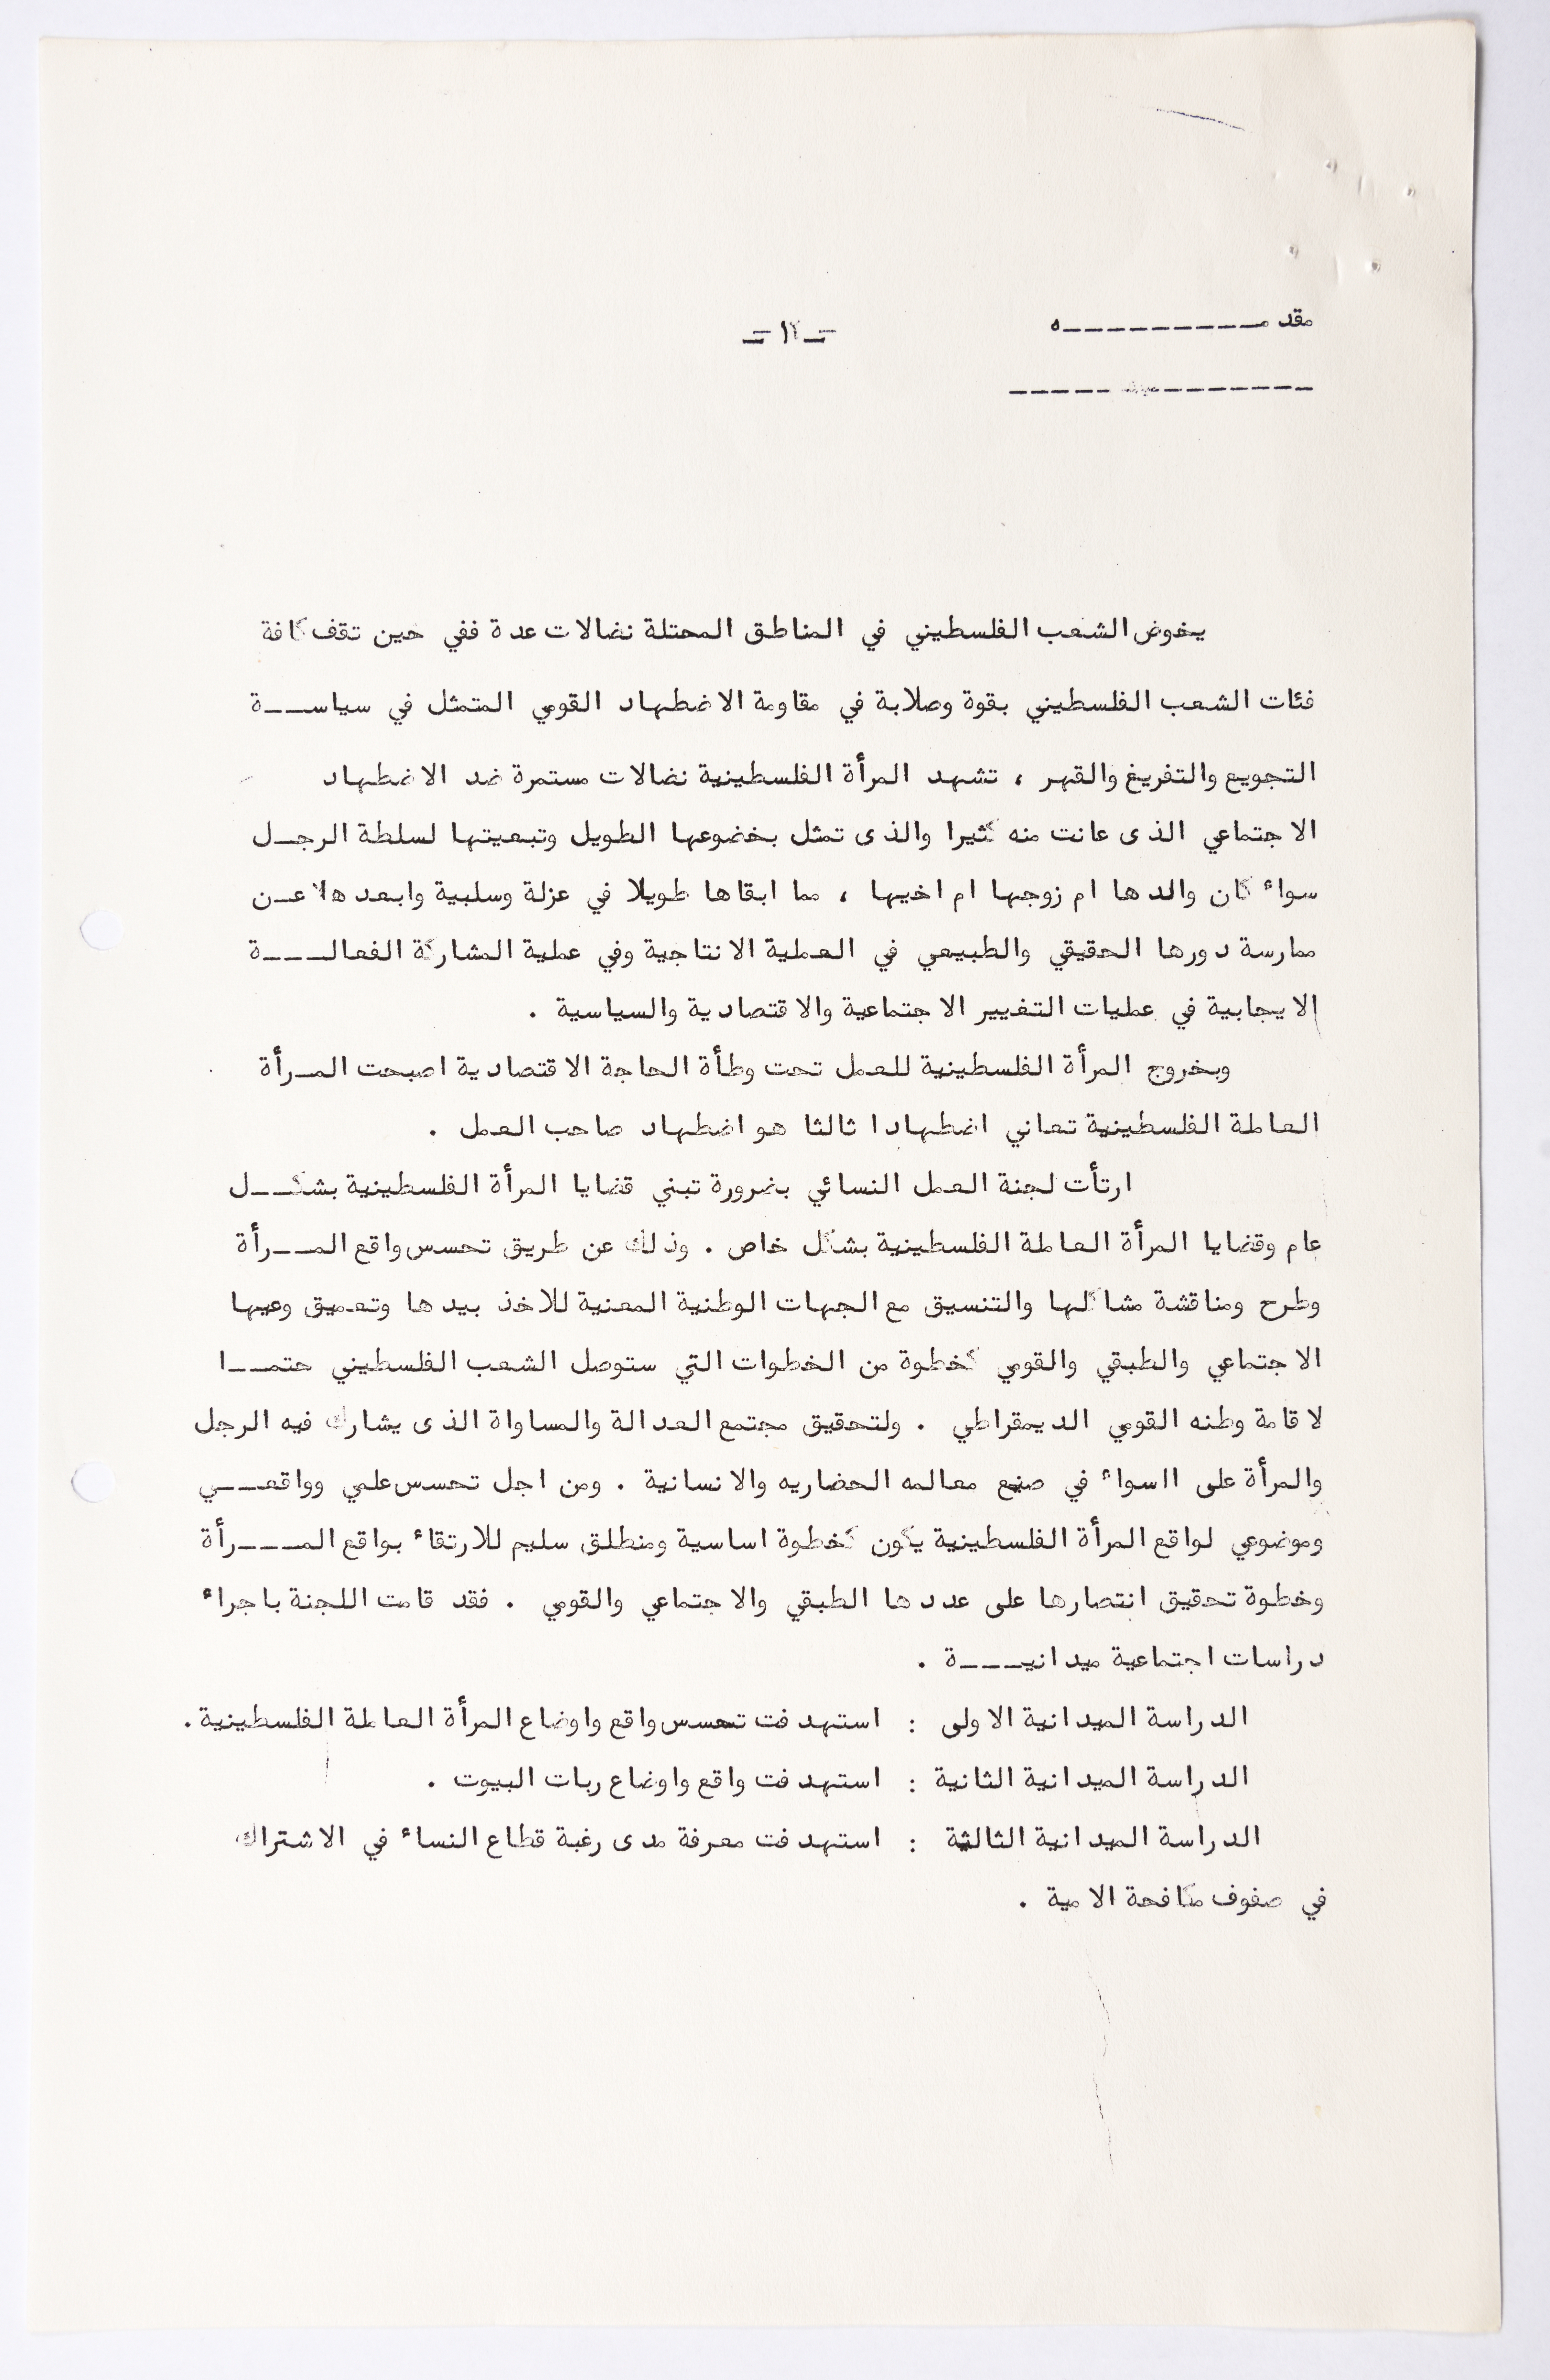 مقدمـــــــــــه
-١-
يخوض الشعب الفلسطيني في المناطق المحتلة نضالات عدة ففي حين تقف كافة
فئات الشعب الفلسطيني بقوة وصلابة في مقاومة الاضطهاد القومي المتمثل في سياســـة
التجويع والتفريغ والقهر ، تشهد المرأة الفلسطينية نضالات مستمرة ضد الاضطهاد
الاجتماعي الذى عانت منه كثيرا والذى تمثل بخضوعها الطويل وتبعيتها لسلطة الرجــل
سواء كان والدها ام زوجها ام اخيها ، مما ابقاها طويلا في عزلة وسلبية وابعدها عــن
ممارسة دورها الحقيقي والطبيعي في العملية الانتاجية وفي عملية المشاركة الفعالـــــة
الايجابية في عمليات التغيير الاجتماعية والاقتصادية والسياسية .
وبخروج المرأة الفلسطينية للعمل تحت وطأة الحاجة الاقتصادية اصبحت المــرأة
العاملة الفلسطينية تعاني اضطهادا ثالثا هو اضطهاد صاحب العمل .
ارتأت لجنة العمل النسائي بضرورة تبني قضايا المرأة الفلسطينية بشكـــل
عام وقضايا المرأة العاملة الفلسطينية بشكل خاص . وذلك عن طريق تحسس واقع المـــرأة
وطرح ومناقشة مشاكلها والتنسيق مع الجهات الوطنية المعنية للاخذ بيدها وتعميق وعيها
الاجتماعي والطبقي والقومي كخطوة من الخطوات التي ستوصل الشعب الفلسطيني حتمـــا
لاقامة وطنه القومي الديمقراطي . ولتحقيق مجتمع العدالة والمساواة الذى يشارك فيه الرجل
والمرأة على السواء في صنع معالمه الحضاريه والانسانية . ومن اجل تحسس علمي وواقعـــي
وموضوعي لواقع المرأة الفلسطينية يكون كخطوة اساسية ومنطلق سليم للارتقاء بواقع المــــرأة
وخطوة تحقيق انتصارها على عددها الطبقي والاجتماعي والقومي . فقد قامت اللجنة باجراء
دراسات اجتماعية ميدانيـــــة .
الدراسة الميدانية الاولى : استهدفت تحسس واقع واوضاع المرأة العاملة الفلسطينية .
الدراسة الميدانية الثانية : استهدفت واقع واوضاع ربات البيوت .
الدراسة الميدانية الثالثة : استهدفت معرفة مدى رغبة قطاع النساء في الاشتراك
في صفوف مكافحة الامية .